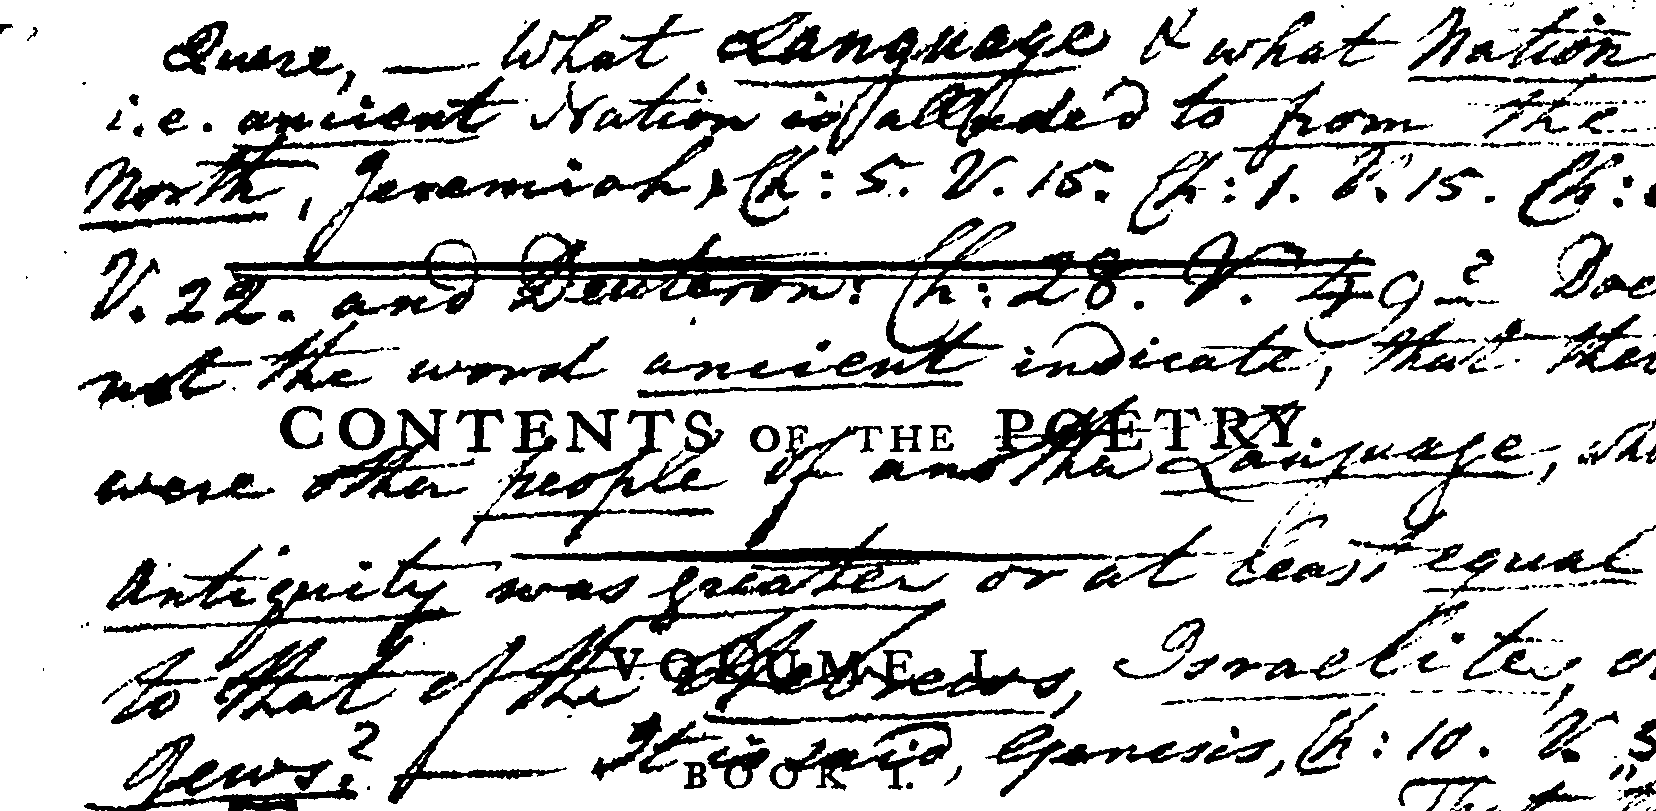 Quere, — What Language & what Nation
i.e. ancient Nation is alluded to from the
North, Jeremiah, Ch: 5. V. 15. Ch: 1. V. 15. Ch:
V. 22. and Deuteron: Ch: 28. V. 49? Doe
not the word ancient indicate, that ther
CONTENTS OF THE POETRY.
were other people of another Language, who
Antiquity was greater or at least equal
VOLUME I.
to that of the Hebrews, Israelites, or
Jews? — It is said, Genesis, Ch: 10. V. 5
BOOK I.